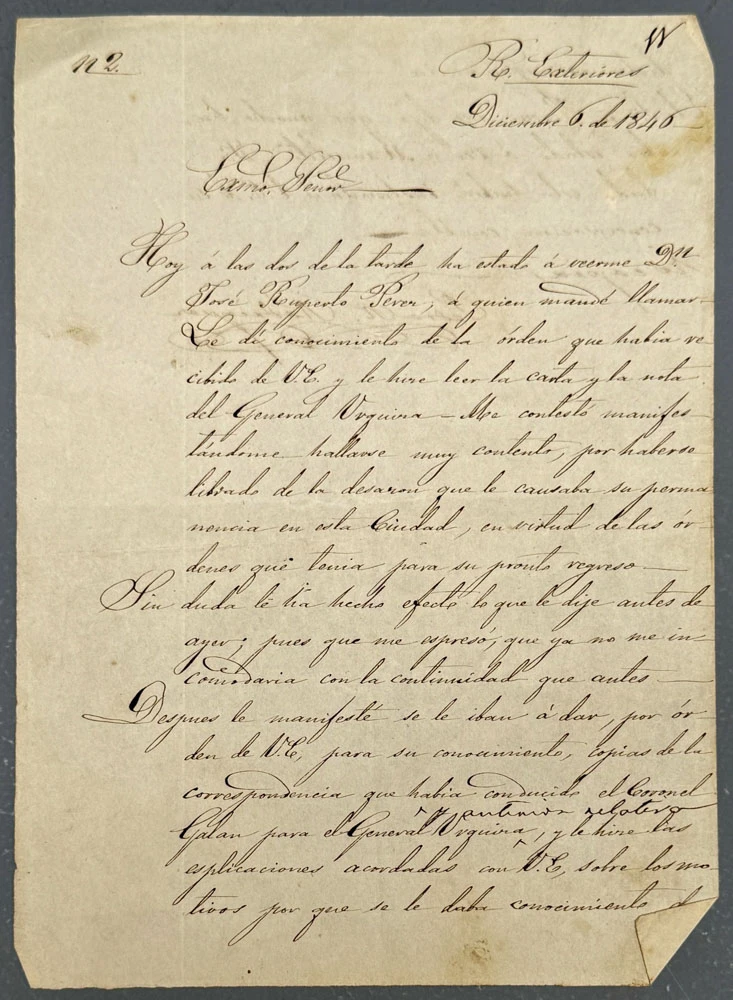 n 2.
R. Exteriores
Diciembre 6. de 1846
Exmo. Señor
Hoy á las dos de la tarde ha estado á veerme Dn
José Ruperto Perez, á quien mandé llamar.
Le dí conocimiento de la órden que habia re
cibido de V.E. y le hize leer la carta y la nota
del General Urquiza - Me contestó manifes
tándome hallarse muy contento, por haberse
librado de la desazon que le causaba su perma
nencia en esta Ciudad, en virtud de las ór-
denes que tenia para su pronto regreso-
Sin duda le ha hecho efecto lo que le dije antes de
ayer; pues que me espresó, que ya no me in-
comodaria con la continuidad que antes-
Despues le manifesté se le iban á dar, por ór-
den de V.E, para su conocimiento, copias de la
correspondencia que habia conducido el Coronel
y anterior relativa
Galan para el General Urquiza, y le hize las
esplicaciones acordadas con V.E, sobre los mo-
tivos por que se le daba conocimiento d